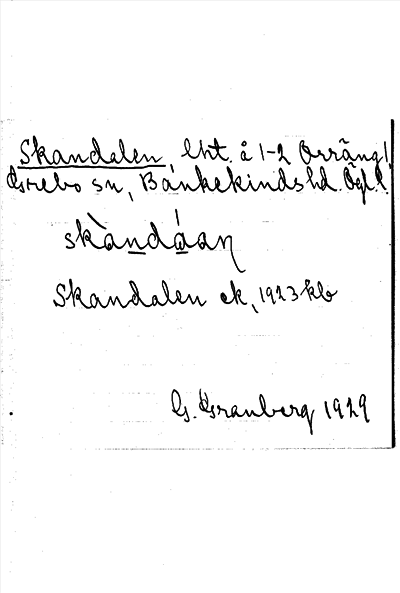 Skandalen, lht. å 1-2 Orräng,
Grebo sn, Bankekinds hd. Ögl.
skàndáan
Skandalen ek, 1923 kb
G. Granberg 1929